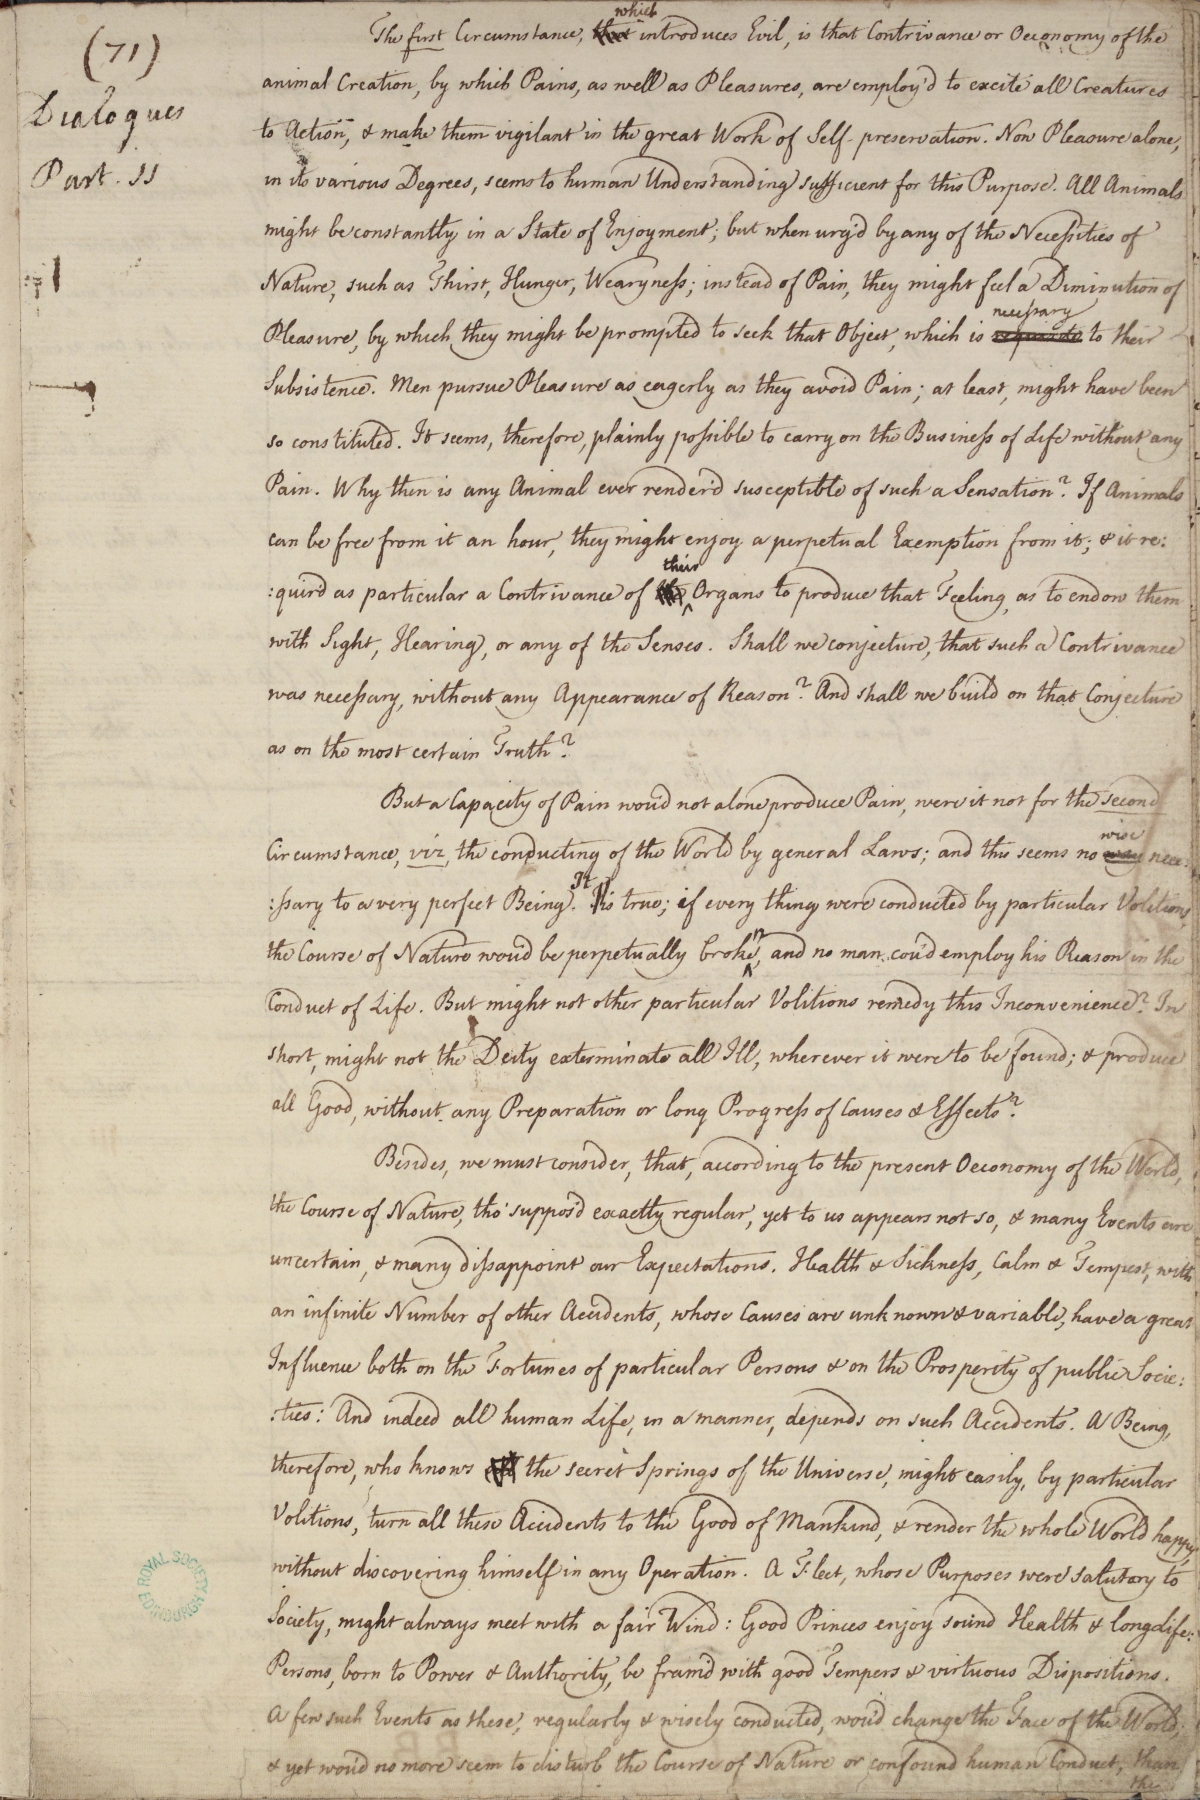 (71)
Dialogues
Part. 11
which
The first Circumstance, that introduces Evil, is that Contrivance or Oeconomy of the
animal Creation, by which Pains, as well as Pleasures, are employ'd to excite all Creatures
to Action, & make them vigilant in the great Work of Self-preservation. Now Pleasure alone,
in its various Degrees, seems to human Understanding sufficient for this Purpose. All Animals
might be constantly in a State of Enjoyment; but when urg'd by any of the Necessities of
Nature, such as Thirst, Hunger, Wearyness; instead of Pain, they might feel a Diminution of
necessary
Pleasure, by which they might be prompted to seek that Object, which is requisite to their
Subsistence. Men pursue Pleasure as eagerly as they avoid Pain; at least, might have been
so constituted. It seems, therefore, plainly possible to carry on the Business of Life without any
Pain. Why then is any Animal ever render'd susceptible of such a Sensation? If Animals
can be free from it an hour, they might enjoy a perpetual Exemption from it; & it re:
their
:quir'd as particular a Contrivance of Organs to produce that Feeling, as to endow them
with Sight, Hearing, or any of the Senses. Shall we conjecture, that such a Contrivance
was necessary, without any Appearance of Reason? And shall we build on that Conjecture
as on the most certain Truth?
But a Capacity of Pain wou'd not alone produce Pain, were it not for the second
wise
Circumstance, viz, the conducting of the World by general Laws; and this seems no way nece:
:ssary to a very perfect Being. It is true; if every thing were conducted by particular Volitions,
the Course of Nature wou'd be perpetually broken, and no man cou'd employ his Reason in the
Conduct of Life. But might not other particular Volitions remedy this Inconvenience? In
short, might not the Deity exterminate all Ill, wherever it were to be found; & produce
all Good, without any Preparation or long Progress of Causes & Effects?
Besides, we must consider, that, according to the present Oeconomy of the World,
the Course of Nature, tho' suppos'd exactly regular, yet to us appears not so, & many Events are
uncertain, & many dissappoint our Expectations. Health & Sickness, Calm & Tempest, with
an infinite Number of other Accidents, whose Causes are unknown & variable, have a great
Influence both on the Fortunes of particular Persons & on the Prosperity of public Socie:
:ties: And indeed all human Life, in a manner, depends on such Accidents. A Being,
therefore, who knows the secret Springs of the Universe, might easily, by particular
Volitions, turn all these Accidents to the Good of Mankind, & render the whole World happy,
without discovering himself in any Operation. A Fleet, whose Purposes were salutary to
Society, might always meet with a fair Wind: Good Princes enjoy sound Health & long Life:
Persons, born to Power & Authority, be fram'd with good Tempers & virtuous Dispositions.
A few such Events as these, regularly & wisely conducted, wou'd change the Face of the World;
& yet wou'd no more seem to disturb the Course of Nature or confound human Conduct, than
the
ROYAL SOCIETY
EDINBURGH